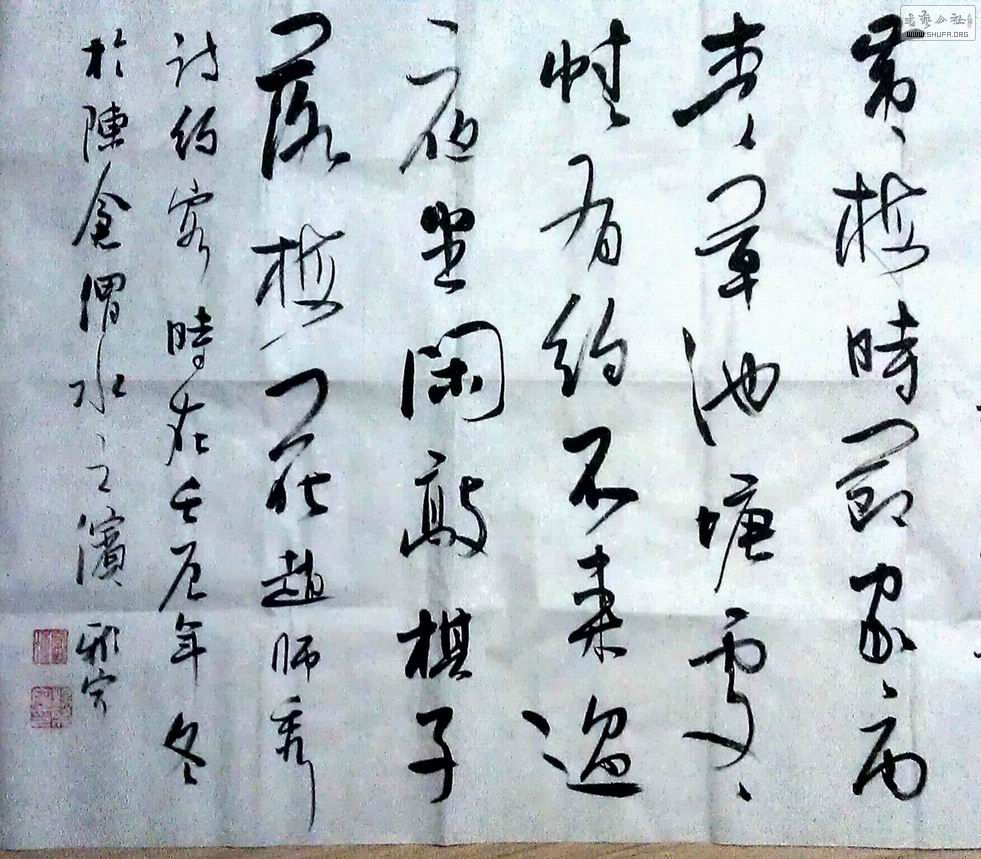 黄梅時節家〻雨
青草池塘處〻
蛙有約不来過
夜坐閑敲棋子
落梅花趙師秀
詩約客時在壬辰年冬
於陳倉渭水之濱
書藝公社
WWW.SHUFA.ORG